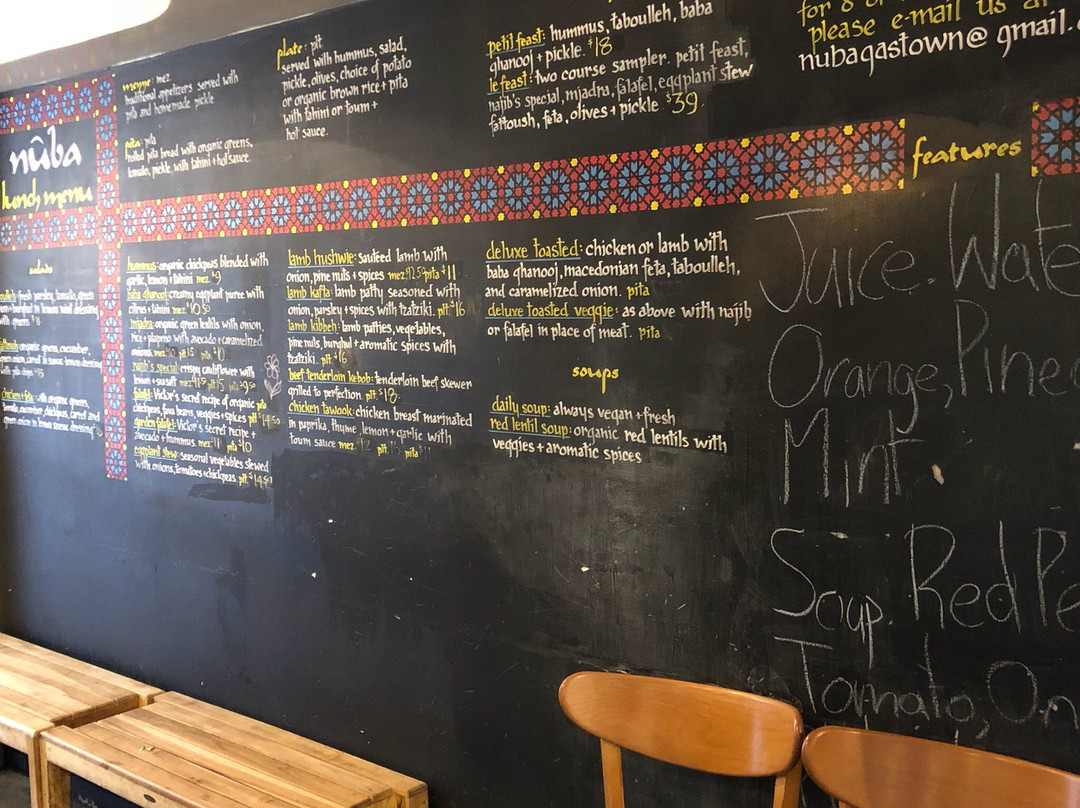 nûba
lunch menu
mezze: mez.
traditional appetizers served with
pita and homemade pickle
pita: pita
rolled pita bread with organic greens,
tomato, pickle. with tahini + hot sauce.
plate: plt.
served with hummus, salad,
pickle, olives, choice of potato
or organic brown rice + pita
with tahini or toum +
hot sauce.
petit feast: hummus, taboulleh, baba
ghanooj + pickle. $18
le feast: two course sampler. petit feast,
najib's special, mjadra, falafel, eggplant stew
fattoush, feta, olives + pickle. $39
for 8 or
please e-mail us at
nubagastown@gmail.c
salads
fresh parsley, tomato, green
chicken feta: with organic greens,
tomato, cucumber, chickpeas, carrot and
green onion in
hummus: organic chickpeas blended with
garlic, lemon + tahini mez. $9
baba ghanooj: creamy eggplant puree with
citrus + tahini mez. $10.50
mjadra: organic green lentils with onion,
rice + jalapeno with avocado + caramelized
onions.
najib's special: crispy cauliflower with
lemon + sea salt
falafel: Victor's secret recipe of organic
chickpeas, fava beans, veggies + spices
garden falafel: Victor's secret recipe +
avocado + hummus. mez. $11 pita $10
eggplant stew: seasonal vegetables stewed
with onions, tomatoes + chickpeas. plt. $14.50
lamb hushwie: sautéed lamb with
onion, pine nuts + spices mez. pita $11
lamb kafta: lamb patty seasoned with
onion, parsley + spices with tzatziki. plt. $16
lamb kibbeh: lamb patties, vegetables,
pine nuts, burghul + aromatic spices with
tzatziki. plt. $16
beef tenderloin kebob: tenderloin beef skewer
grilled to perfection. plt. $18
chicken tawook: chicken breast marinated
in paprika, thyme, lemon + garlic with
toum sauce mez. plt. pita
deluxe toasted: chicken or lamb with
baba ghanooj, macedonian feta, taboulleh,
and caramelized onion. pita
deluxe toasted veggie: as above with najib
or falafel in place of meat. pita
soups
daily soup: always vegan + fresh
red lentil soup: organic red lentils with
veggies + aromatic spices
features
Juice. Wate
Orange, Pine
Mint
Soup. Red Pe
Tomato, On